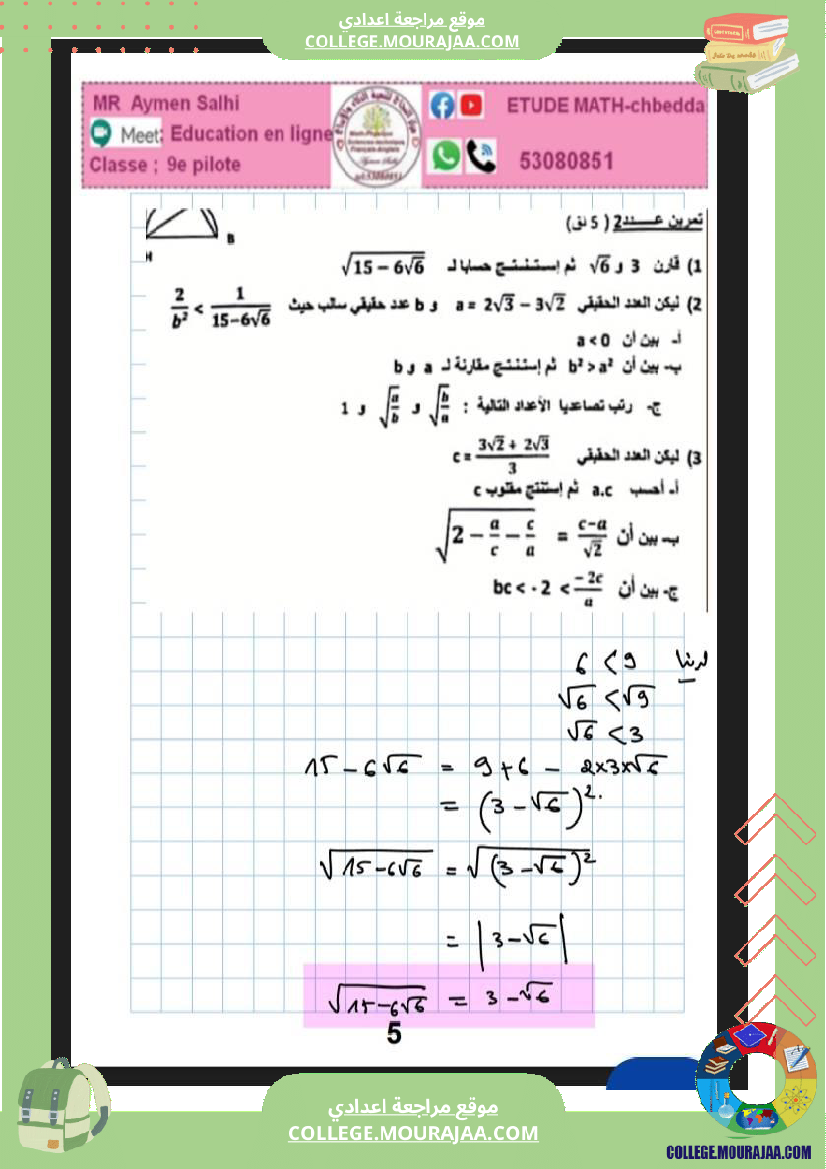 موقع مراجعة اعدادي
COLLEGE.MOURAJAA.COM
MR Aymen Salhi
Meet: Education en ligne
Classe ; 9e pilote
ETUDE MATH-chbedda
53080851
B
H
تمرين عــــدد2 ( 5 نق)
1) قارن 3 و √6 ثم إستنتج حسابا لـ √(15 − 6√6)
2) ليكن العدد الحقيقي a = 2√3 − 3√2 و b عدد حقيقي سالب حيث 2/b² < 1/(15−6√6)
أ- بين أن a < 0
ب- بين أن b² > a² ثم إستنتج مقارنة لـ a و b
ج- رتب تصاعديا الأعداد التالية : √(b/a) و √(a/b) و 1
3) ليكن العدد الحقيقي c = (3√2 + 2√3)/3
أ- أحسب a.c ثم إستنتج مقلوب c
ب- بين أن √(2 − a/c − c/a) = (c−a)/√2
ج- بين أن bc < - 2 < −2c/a
لدينا 6 < 9
√6 < √9
√6 < 3
15 − 6√6 = 9 + 6 − 2×3×√6
= (3 − √6)².
√(15 − 6√6) = √((3 − √6)²)
= |3 − √6|
√(15 − 6√6) = 3 − √6
5
موقع مراجعة اعدادي
COLLEGE.MOURAJAA.COM
COLLEGE.MOURAJAA.COM